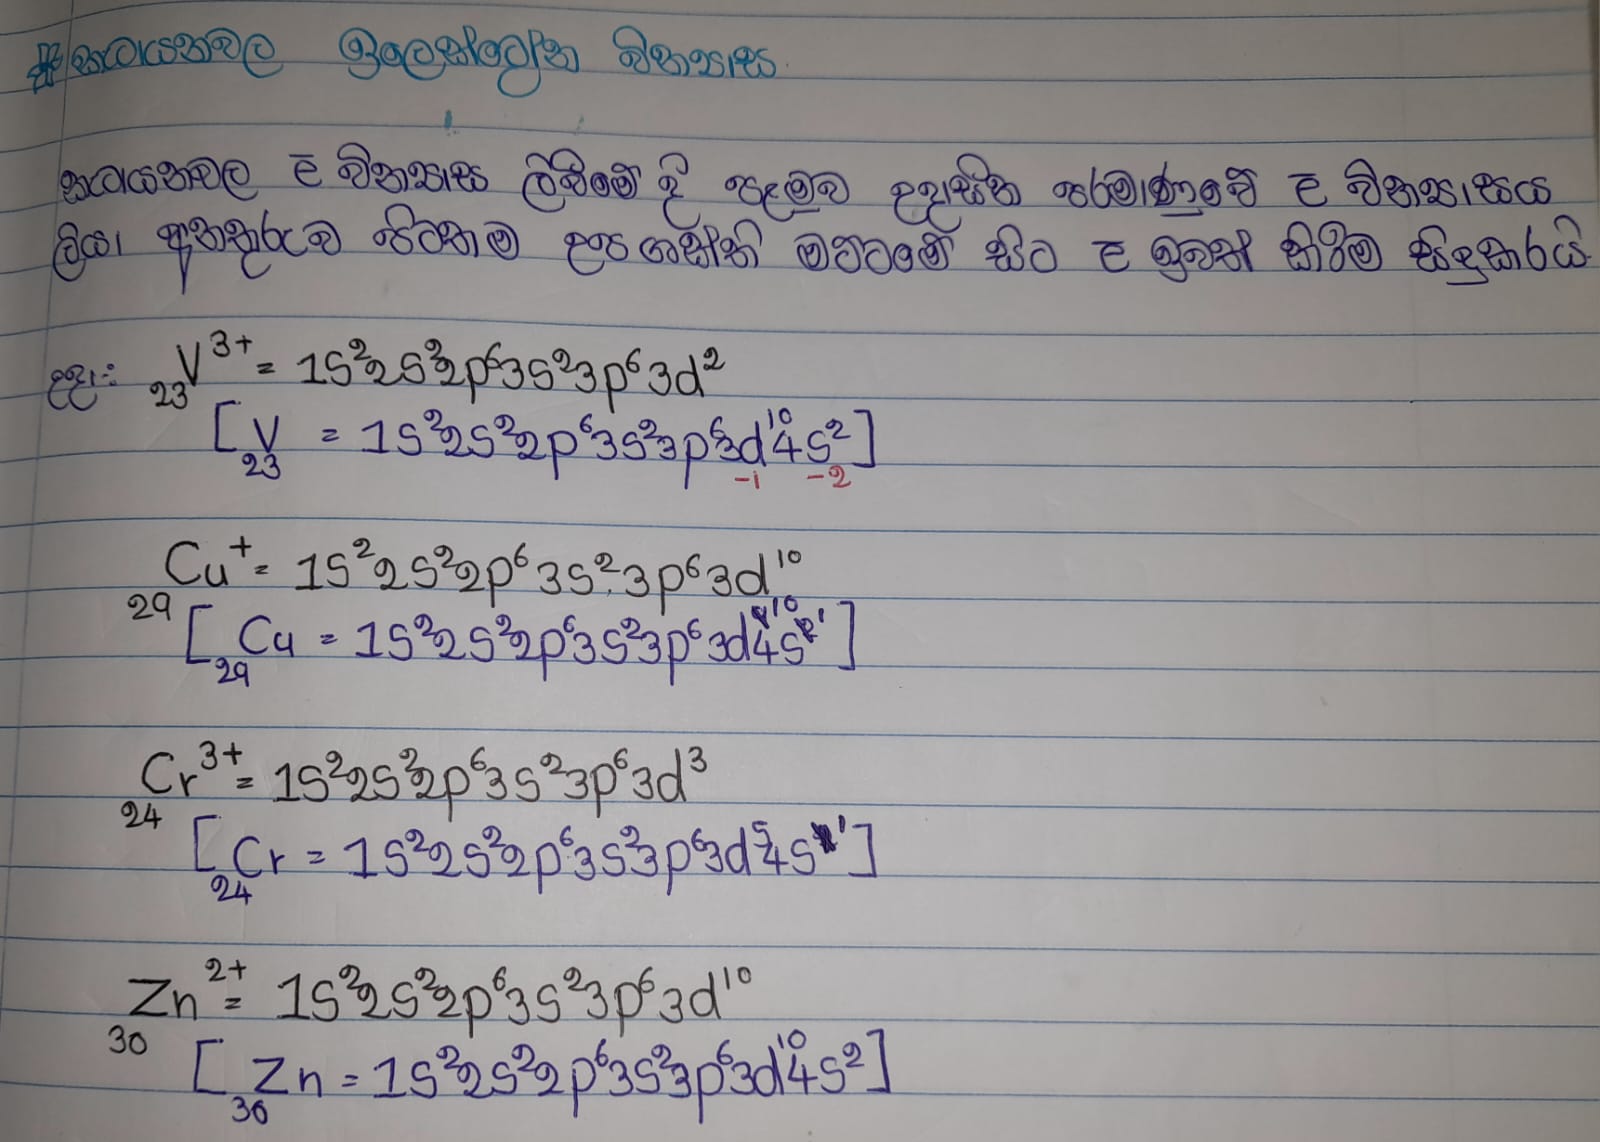 * කැටායනවල ඉලෙක්ට්‍රෝන වින්‍යාස
කැටායනවල ē වින්‍යාස ලිවීමේ දී පළමුව උදාසීන පරමාණුවේ ē වින්‍යාසය
ලියා අනතුරුව පිටතම උපශක්ති මට්ටමේ සිට ē ඉවත් කිරීම සිදුකරයි.
උදා:- ₂₃V³⁺ = 1s²2s²2p⁶3s²3p⁶3d²
[₂₃V = 1s²2s²2p⁶3s²3p⁶3d¹⁰4s²]
-1 -2
₂₉Cu⁺ = 1s²2s²2p⁶3s²3p⁶3d¹⁰
[₂₉Cu = 1s²2s²2p⁶3s²3p⁶3d¹⁰4s¹]
₂₄Cr³⁺ = 1s²2s²2p⁶3s²3p⁶3d³
[₂₄Cr = 1s²2s²2p⁶3s²3p⁶3d⁵4s¹]
₃₀Zn²⁺ = 1s²2s²2p⁶3s²3p⁶3d¹⁰
[₃₀Zn = 1s²2s²2p⁶3s²3p⁶3d¹⁰4s²]